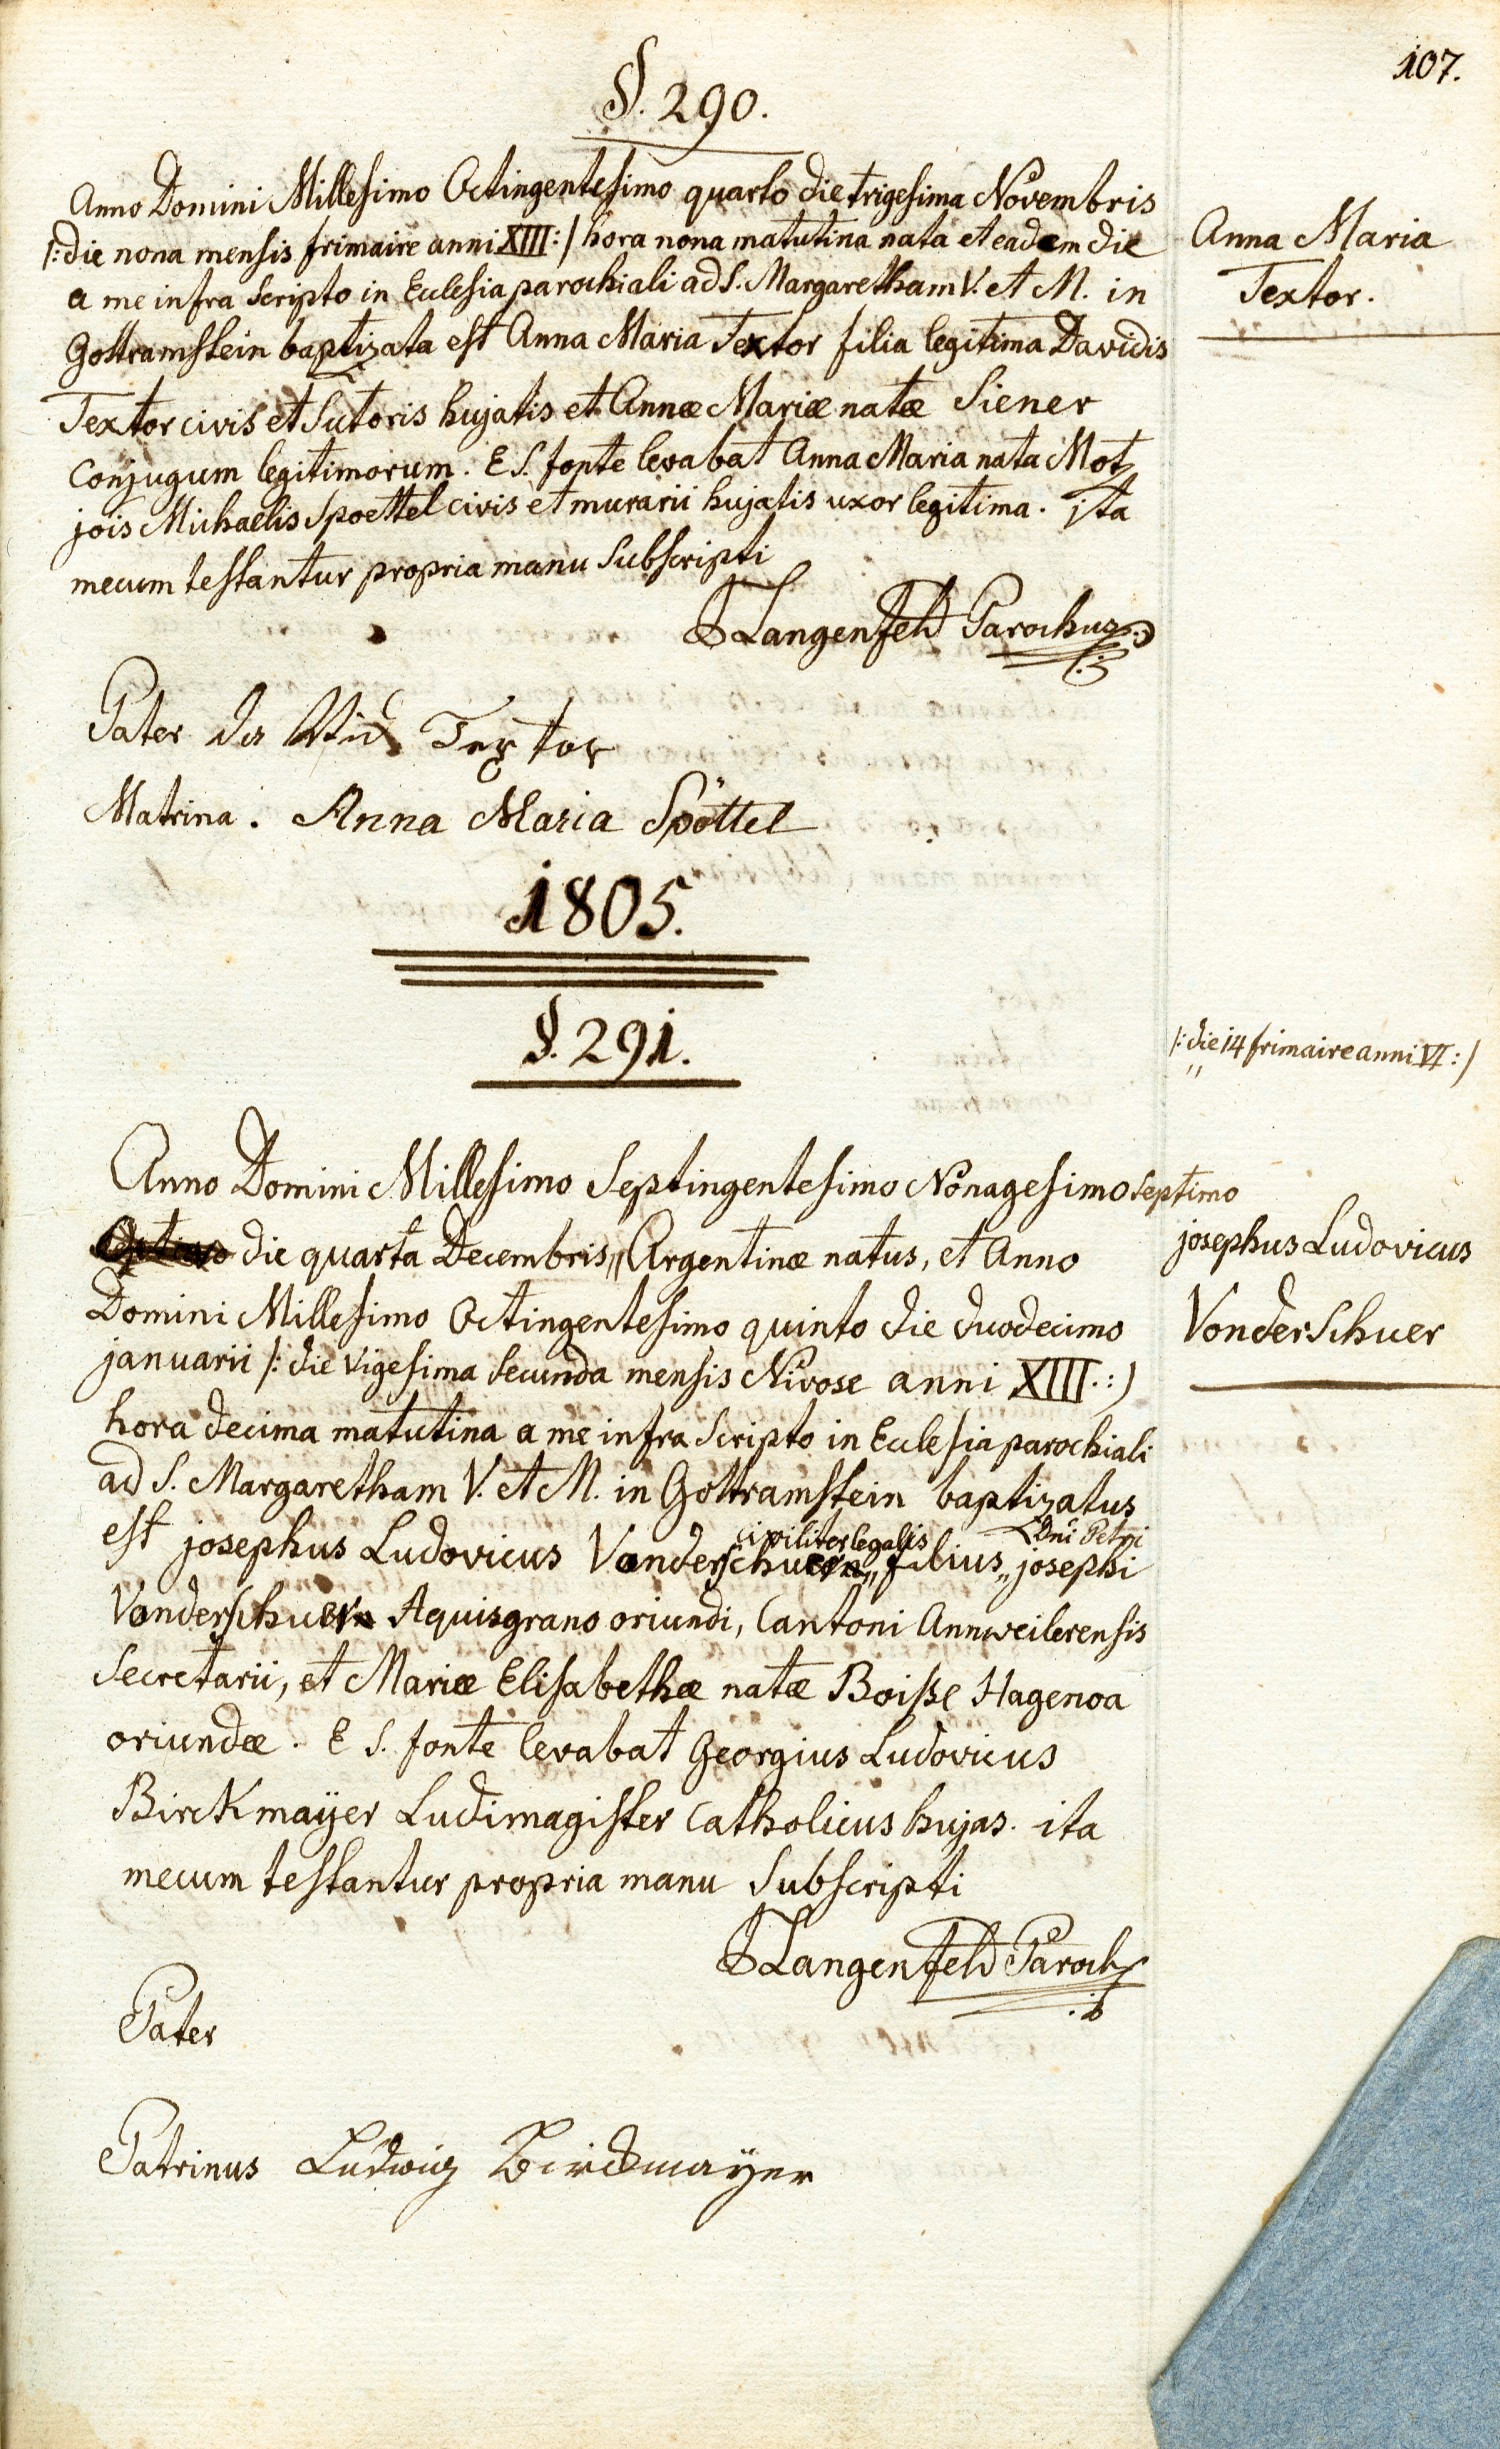 107.
§. 290.
Anno Domini Millesimo Octingentesimo quarto die trigesima Novembris
/: die nona mensis frimaire anni XIII :/ hora nona matutina nata et eadem die
a me infra scripto in Ecclesia parochiali ad S. Margaretham V. et M. in
Gottramstein baptizata est Anna Maria Textor filia legitima Davidis
Textor civis et Sutoris hujatis et Annæ Mariæ natæ Siener
Conjugum legitimorum. E S. fonte levabat Anna Maria nata Motz
jois Michaelis Spoettel civis et murarii hujatis uxor legitima. ita
mecum testantur propria manu Subscripti
Anna Maria
Textor.
Langenfeld Parochus
Pater Textor
Matrina. Anna Maria Spöttel
1805.
§. 291.
/: die 14 frimaire anni VI :/
"
Anno Domini Millesimo Septingentesimo Nonagesimo septimo
die quarta Decembris,, Argentinæ natus, et Anno
Domini Millesimo Octingentesimo quinto die duodecimo
januarii /: die vigesima secunda mensis Nivose anni XIII. :)
hora decima matutina a me infra scripto in Ecclesia parochiali
ad S. Margaretham V. et M. in Gottramstein baptizatus
civiliter legalis Dni Petri
est josephus Ludovicus Vonderschuer,, filius,, josephi
Vonderschuer Aquisgrano oriundi, Cantoni Annweilerensis
Secretarii, et Mariæ Elisabethæ natæ Boiße Hagenoa
oriundæ. E S. fonte levabat Georgius Ludovicus
Birckmaÿer Ludimagister Catholicus hujas. ita
mecum testantur propria manu Subscripti
josephus Ludovicus
VonderSchuer
Langenfeld Paroch
Pater
Patrinus Ludwig Birckmaÿer